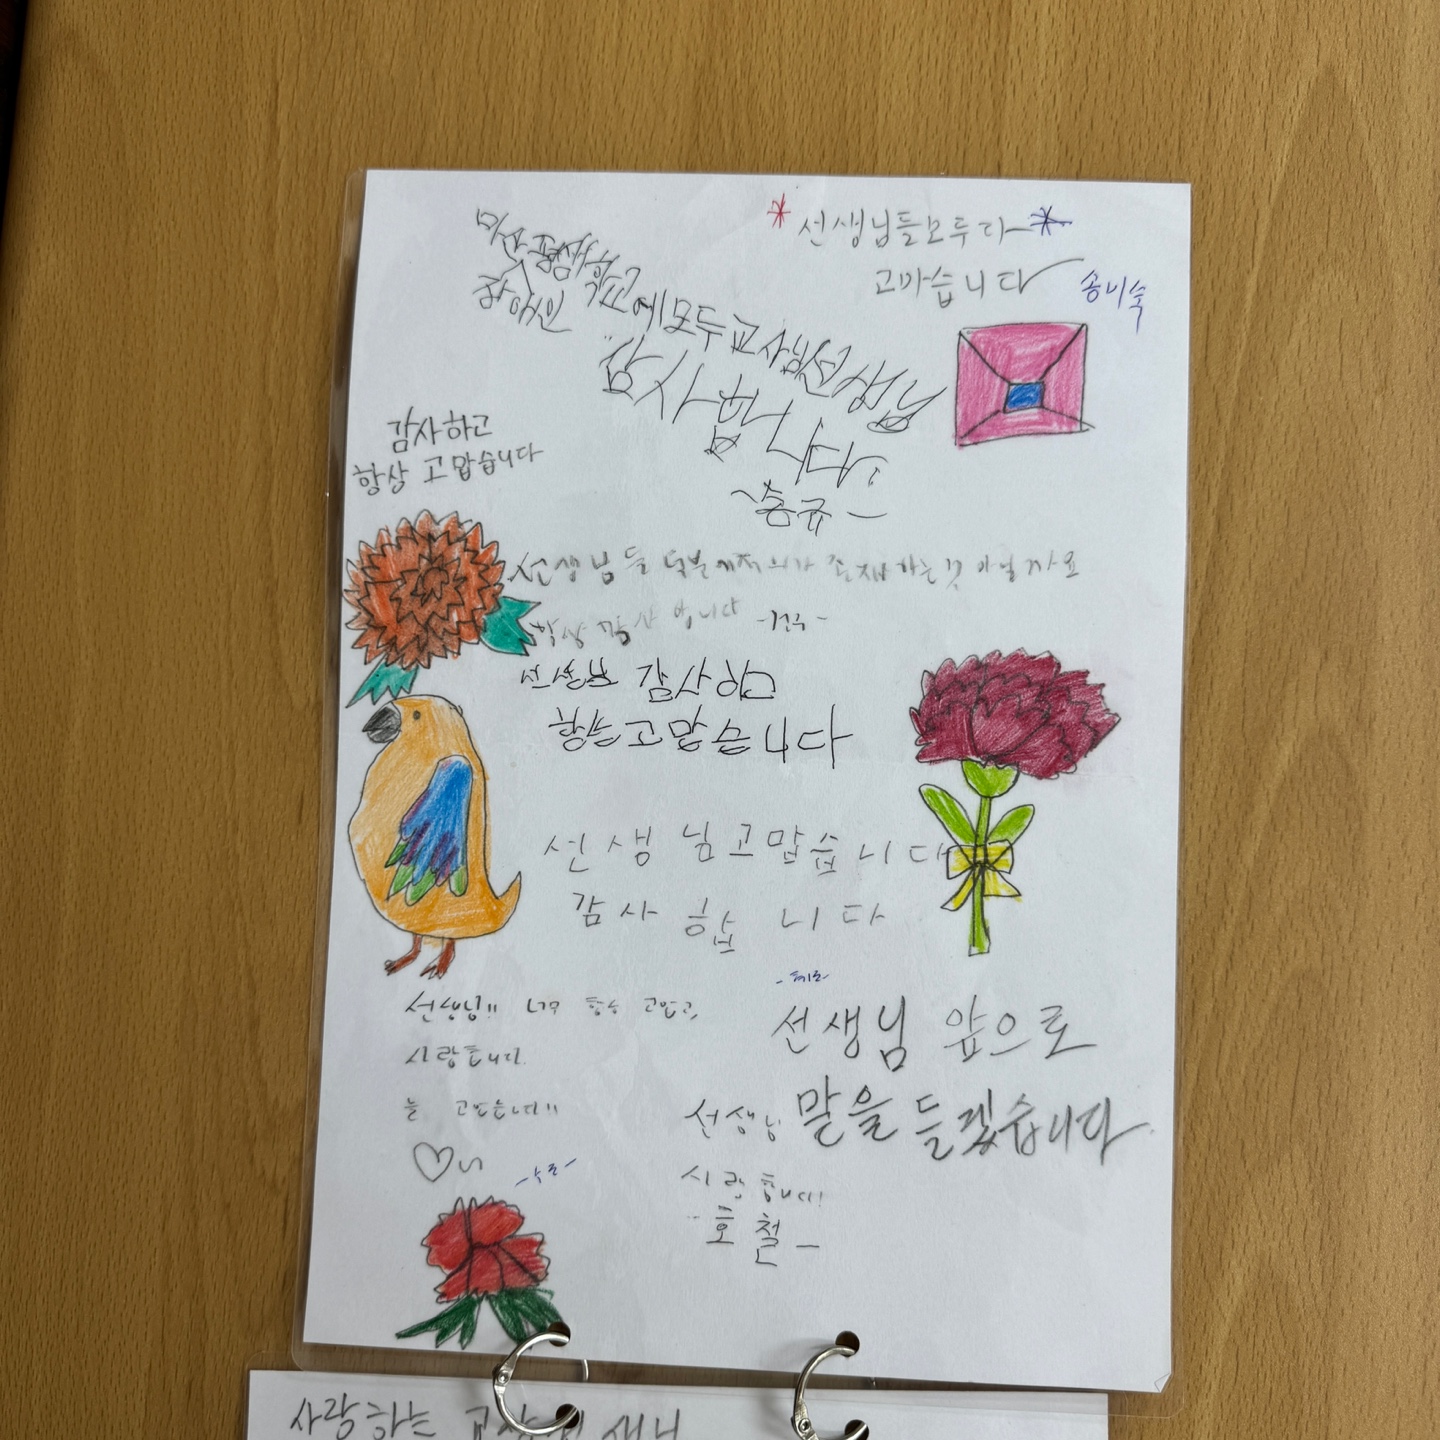 *선생님들모두다*
고마습니다
송미숙
장애인
에모두교사님선생님
감사합니다
~승규-
감사하고
항상 고맙습니다
선생님들 덕분에저의가 존재하는것 아닐까요
항상 감사 합니다
감사하고
고맙습니다
선생님고맙습니다
감사합니다
선생님!! 너무 고맙고,
사랑합니다.
늘 고맙습니다!!
선생님 앞으로
말을 듣겠습니다.
선생님
사랑합니다!
-호철-
사랑하는